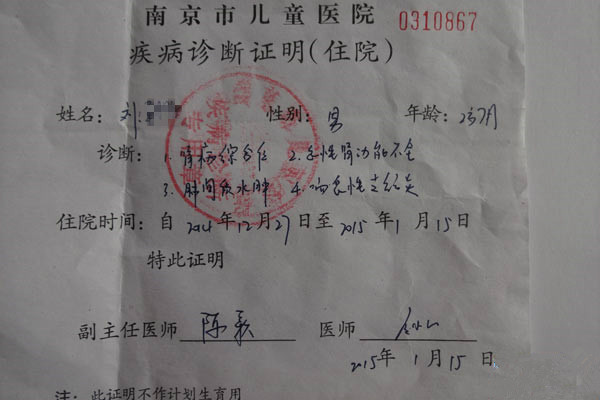 南京市儿童医院
0310867
疾病诊断证明(住院)
姓名: 刘 性别: 男 年龄:
诊断: 1. 肾病综合征 2. 急性肾功能不全
3. 肺间质水肿 4. 喘息性支气管炎
住院时间: 自 2014 年 12 月 27 日至 2015 年 1 月 15 日
特此证明
副主任医师 陈 医师
2015 年 1 月 15 日
注: 此证明不作计划生育用